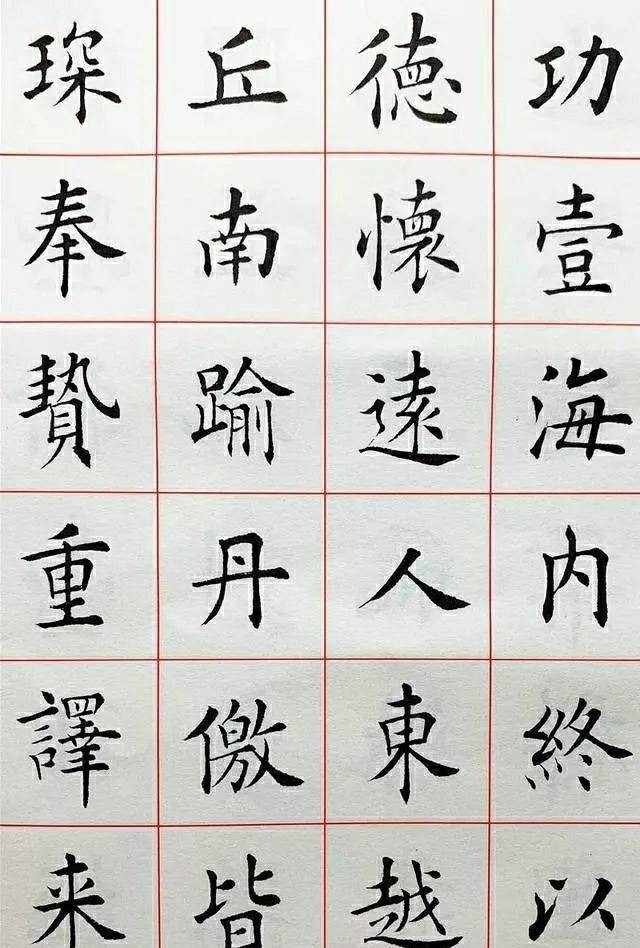 功壹海内終以
德懷遠人東越
丘南踰丹儌皆
琛奉贄重譯来